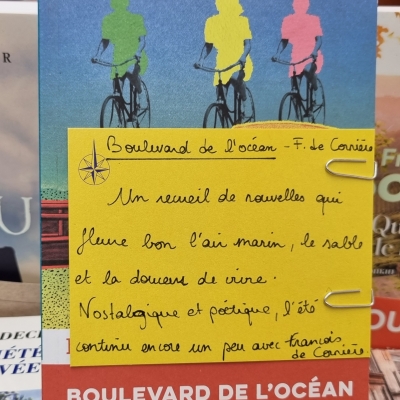 Boulevard de l'océan - F. de Cornière
Un recueil de nouvelles qui
fleure bon l'air marin, le sable
et la douceur de vivre.
Nostalgique et poétique, l'été
continue encore un peu avec François
de Cornière
BOULEVARD DE L'OCÉAN
R
U
DEC
ÉTÉ
VÉE
Fr
Qu
de
man
OU